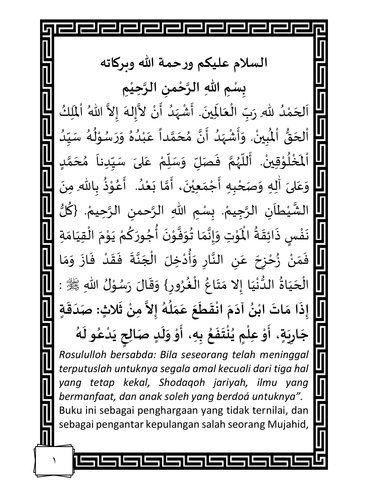 السلام عليكم ورحمة الله وبركاته
بِسْمِ اللهِ الرَّحْمنِ الرَّحِيْمِ
اَلحَمْدُ للهِ رَبِّ الْعَالَمِينَ. أَشْهَدُ أَنْ لاَّإِلهَ إِلاَّ اللهُ اْلمَلِكُ
اْلحَقُّ اْلمُبِينْ. وَأَشْهَدُ أَنَّ مُحَمَّداً عَبْدُهُ وَرَسُوْلُهُ سَيِّدُ
اْلمَخْلُوْقِينْ. أَللّهُمَّ فَصَلِّ وَسَلِّمْ عَلىَ سَيِّدِناَ مُحَمَّدٍ
وَعَلىَ آلِهِ وَصَحْبِهِ أَجْمَعِيْنَ، أَمَّا بَعْدُ. أَعُوْذُ بِاللهِ مِنَ
الشَّيْطاَنِ الرَّجِيمْ. بِسْمِ اللهِ الرَّحمنِ الرَّحِيمْ. {كُلُّ
نَفْسٍ ذَائِقَةُ الْمَوْتِ وَإِنَّمَا تُوَفَّوْنَ أُجُورَكُمْ يَوْمَ الْقِيَامَةِ
فَمَنْ زُحْزِحَ عَنِ النَّارِ وَأُدْخِلَ الْجَنَّةَ فَقَدْ فَازَ وَمَا
الْحَيَاةُ الدُّنْيَا إِلا مَتَاعُ الْغُرُورِ} وَقَالَ رَسُوْلُ اللهِ ﷺ :
إِذَا مَاتَ ابْنُ آدَمَ انْقَطَعَ عَمَلُهُ إِلاَّ مِنْ ثَلاثٍ: صَدَقَةٍ
جَارِيَةٍ، أَوْ عِلْمٍ يُنْتَفَعُ بِهِ، أَوْ وَلَدٍ صَالِحٍ يَدْعُو لَهُ
Rosululloh bersabda: Bila seseorang telah meninggal
terputuslah untuknya segala amal kecuali dari tiga hal
yang tetap kekal, Shodaqoh jariyah, ilmu yang
bermanfaat, dan anak soleh yang berdoá untuknya".
Buku ini sebagai penghargaan yang tidak ternilai, dan
sebagai pengantar kepulangan salah seorang Mujahid,
١